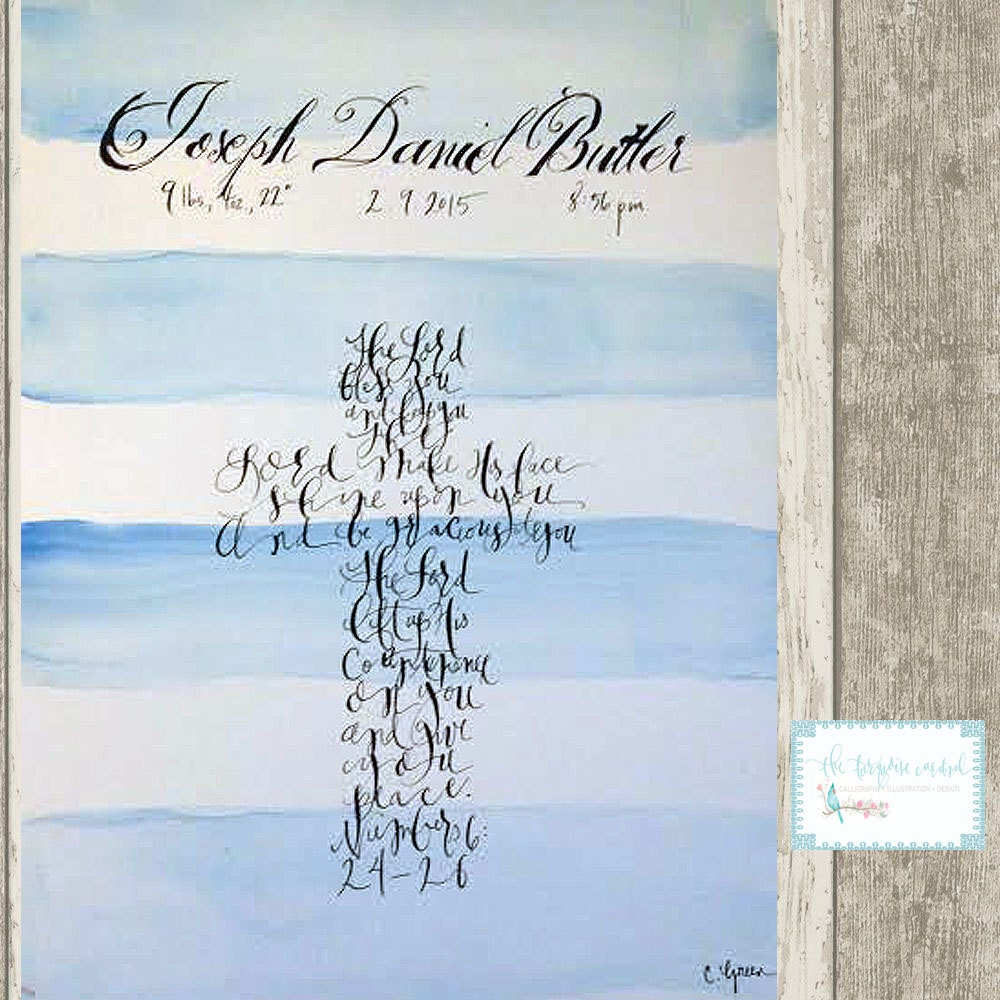 Joseph Daniel Butler
9 lbs, 4oz, 22"
2 9 2015
8:56 pm
The Lord
bless you
and keep you
The
Lord make His face
shine upon you
And be gracious to you
The Lord
lift up His
Countenance
on you
and give
you
peace.
Numbers 6:
24-26
C. Green
the turquoise cardinal
CALLIGRAPHY • ILLUSTRATION • DESIGN